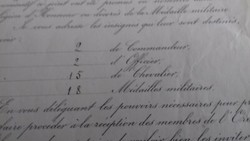 Légion d'Honneur ou décorés de la Médaille militaire
Je vous adresse les insignes qui leur sont destinés,
2 de Commandeur.
2 d'Officier.
15 de Chevalier.
18 Médailles militaires.
En vous déléguant les pouvoirs nécessaires pour
faire procéder à la réception des membres de l'
bien les inviter